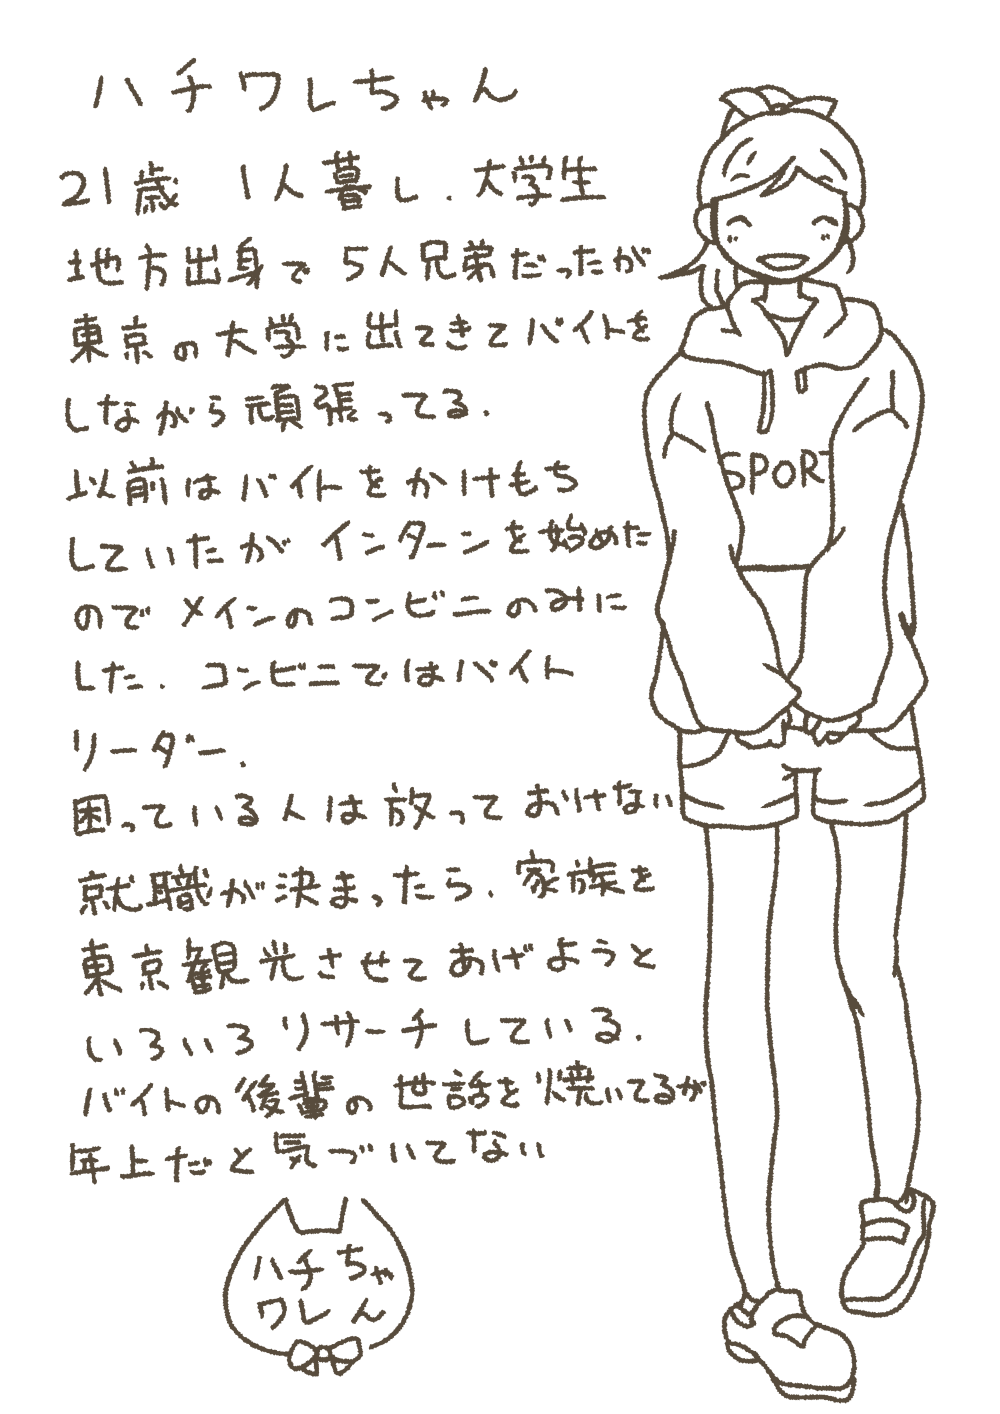 ハチワレちゃん
21歳 1人暮し.大学生
地方出身で 5人兄弟だったが
東京の大学に出てきてバイトを
しながら頑張ってる.
以前はバイトをかけもち
していたが インターンを始めた
ので メインのコンビニのみに
した.コンビニではバイト
リーダー.
困っている人は放っておけない
就職が決まったら.家族を
東京観光させてあげようと
いろいろリサーチしている.
バイトの後輩の世話を焼いてるが
年上だと気づいてない
SPORT
ハチちゃ
ワレん